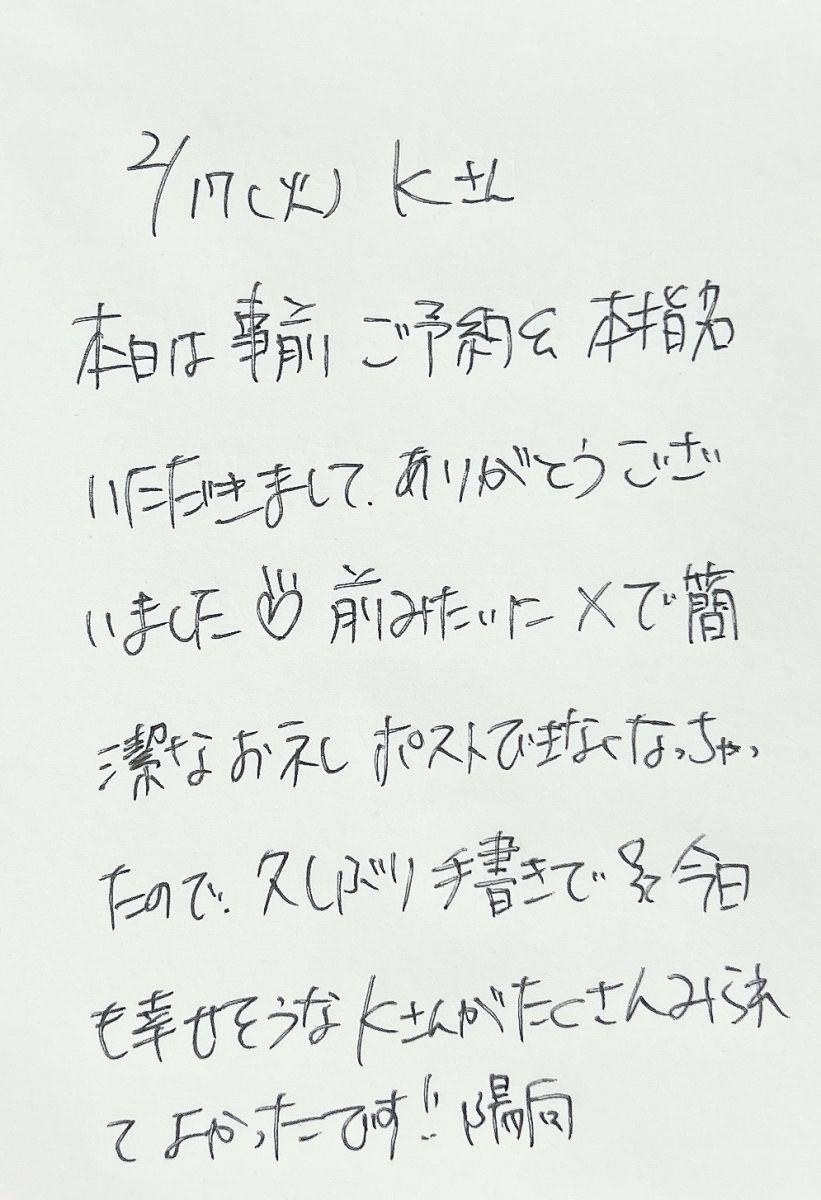 2/17(火) Kさん
本日は事前ご予約&本指名
いただきまして、ありがとうござ
いました 前みたいにXで簡
潔なお礼ポストできなくなっちゃっ
たので、久しぶり手書きで 今日
も幸せそうなKさんがたくさんみられ
てよかったです!! 陽向